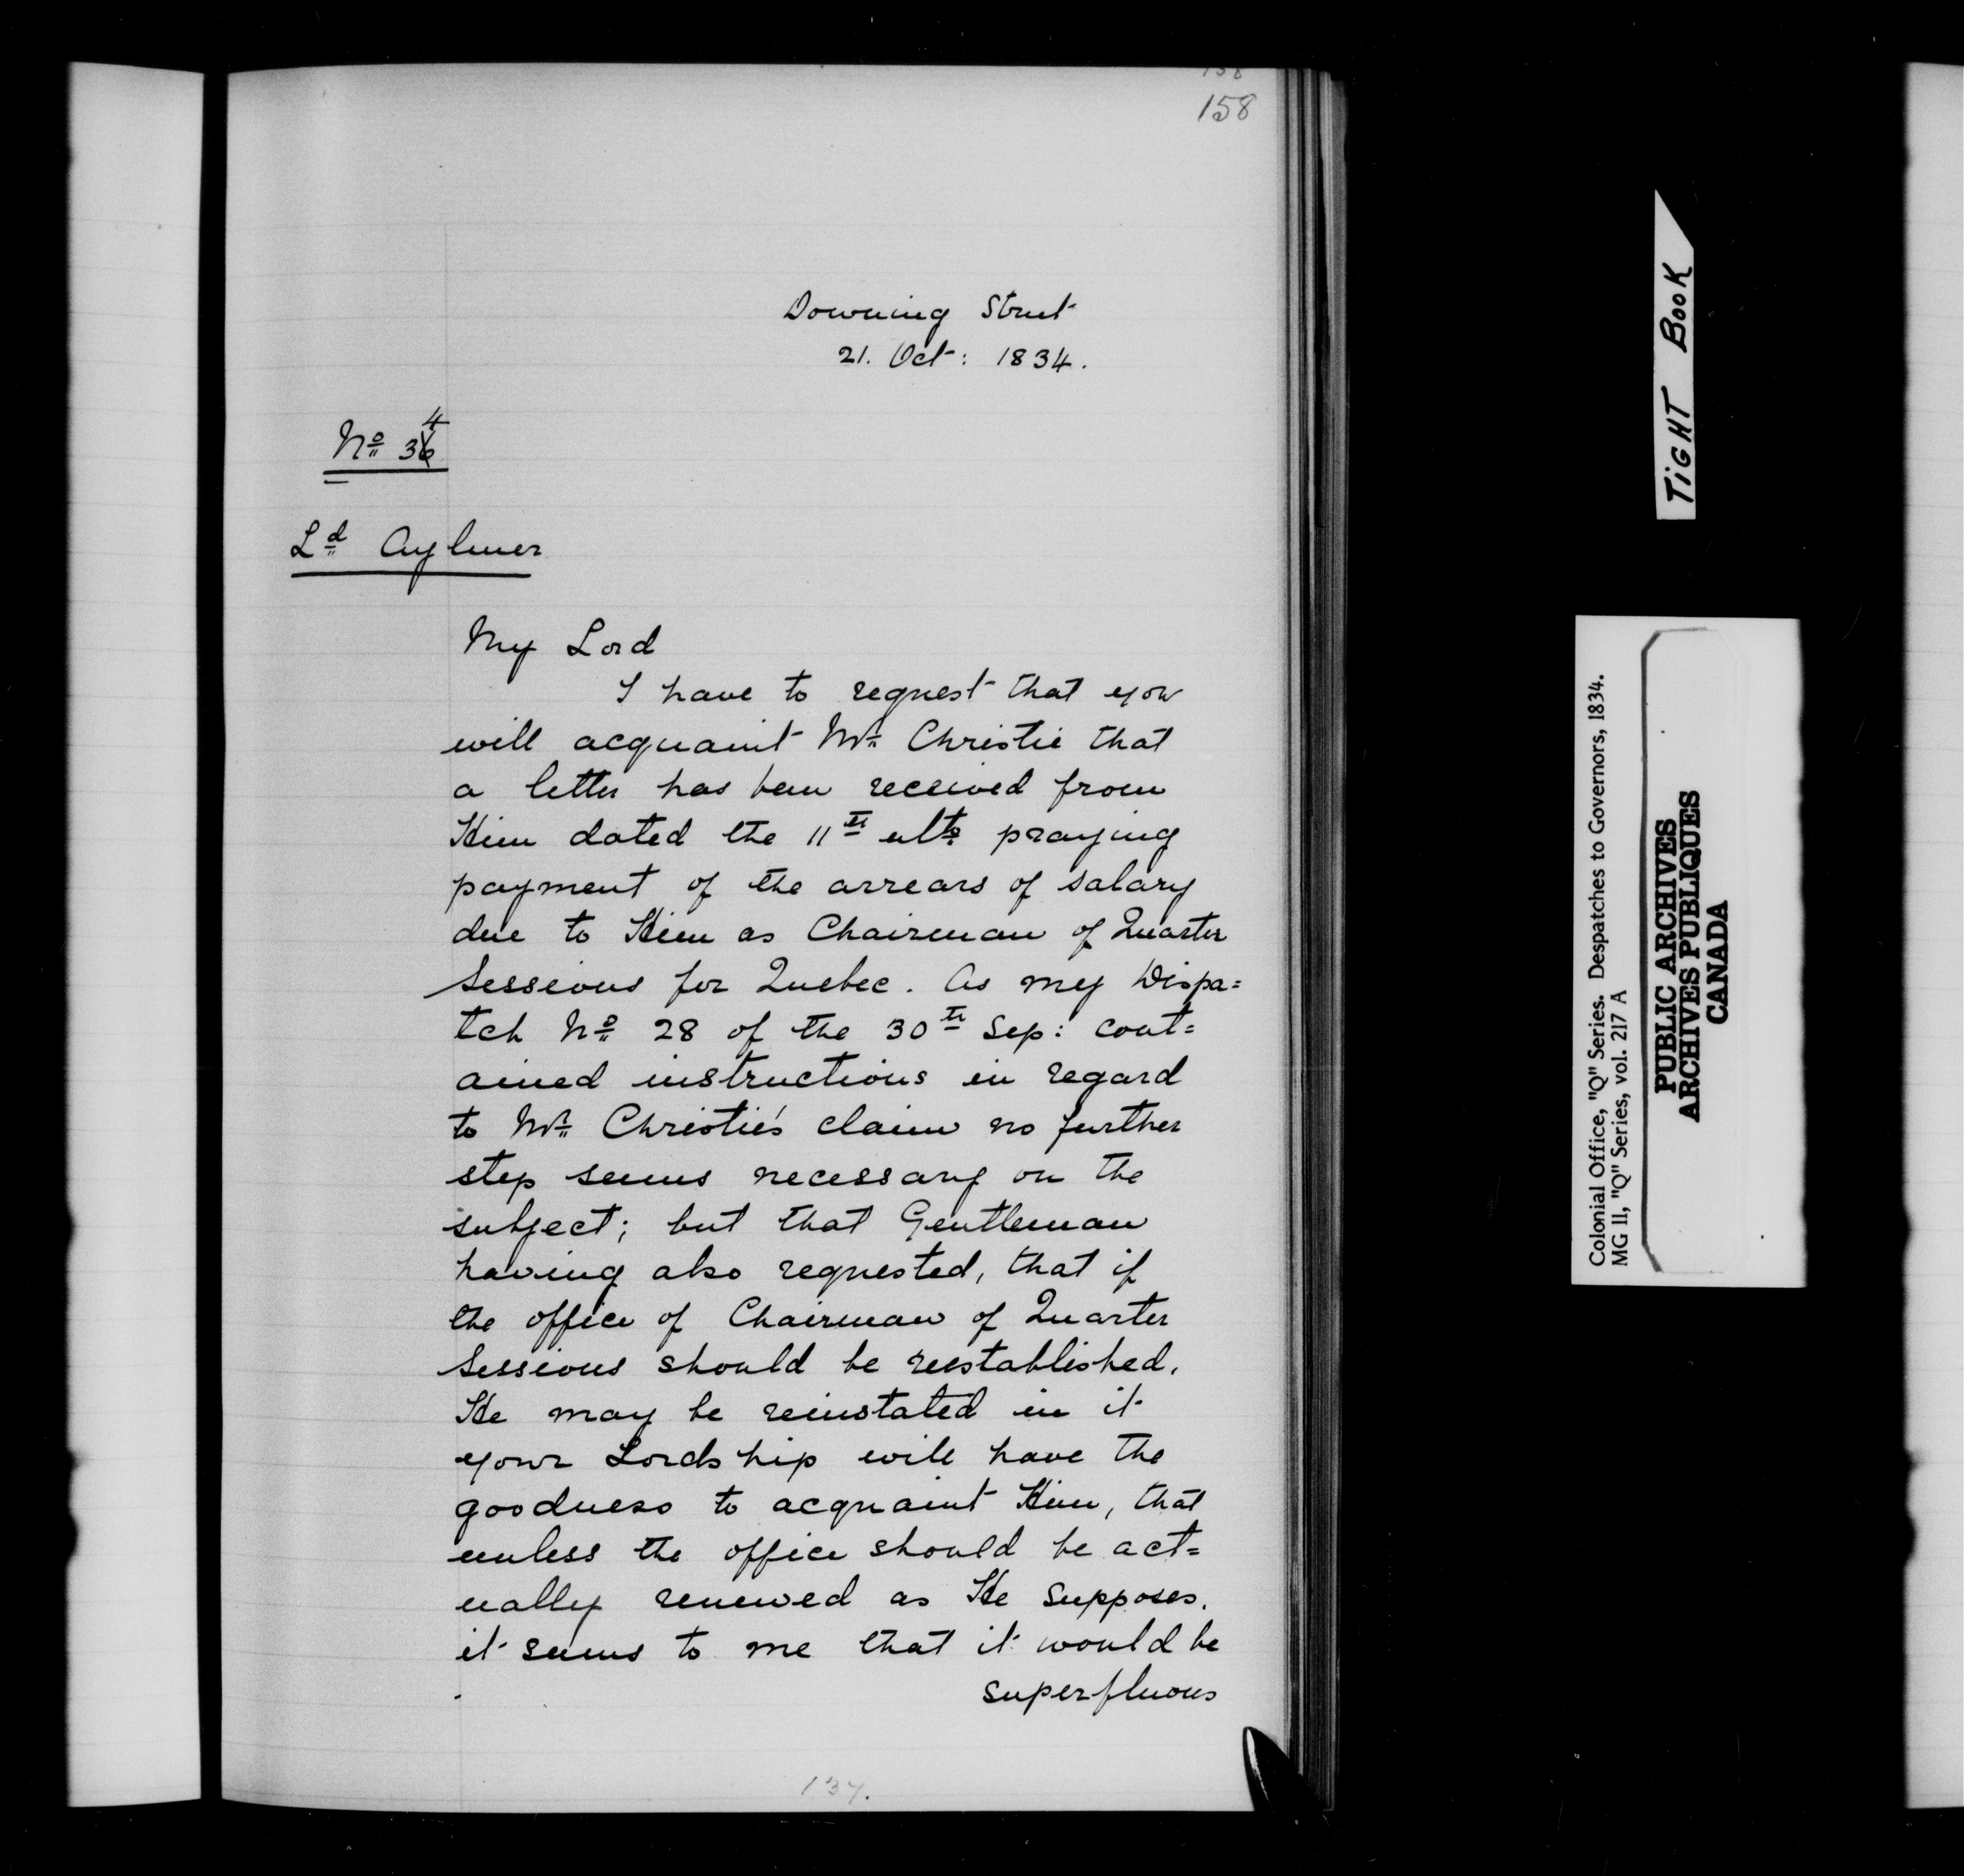 158
158
Downing Street
21. Oct: 1834.
No 34
Ld Aylmer
My Lord
I have to request that you
will acquaint Mr Christie that
a letter has been received from
Him dated the 11th ulto praying
payment of the arrears of salary
due to Him as Chairman of Quarter
Sessions for Quebec. As my Dispa=
tch No 28 of the 30th Sep: cont=
ained instructions in regard
to Mr Christie's claim no further
step seems necessary on the
subject; but that Gentleman
having also requested, that if
the office of Chairman of Quarter
Sessions should be reestablished,
He may be reinstated in it
your Lordship will have the
goodness to acquaint Him, that
unless the office should be act=
ually renewed as He supposes,
it seems to me that it would be
superfluous
137.
TIGHT BOOK
Colonial Office, "Q" Series. Despatches to Governors, 1834.
MG 11, "Q" Series, vol. 217 A
PUBLIC ARCHIVES
ARCHIVES PUBLIQUES
CANADA